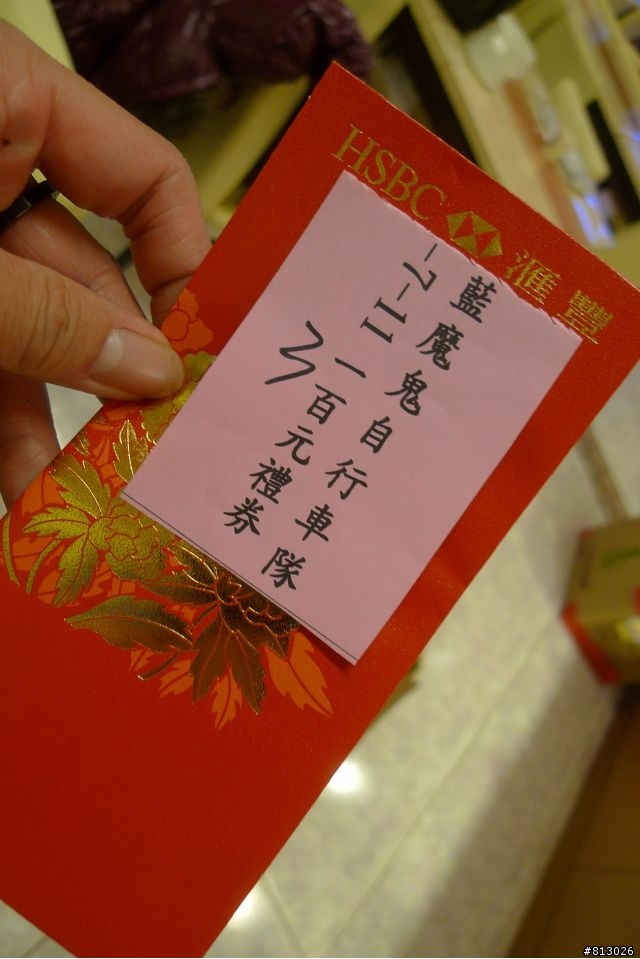 HSBC 滙豐
藍魔鬼自行車隊
-7-11一百元禮券
3
#813026